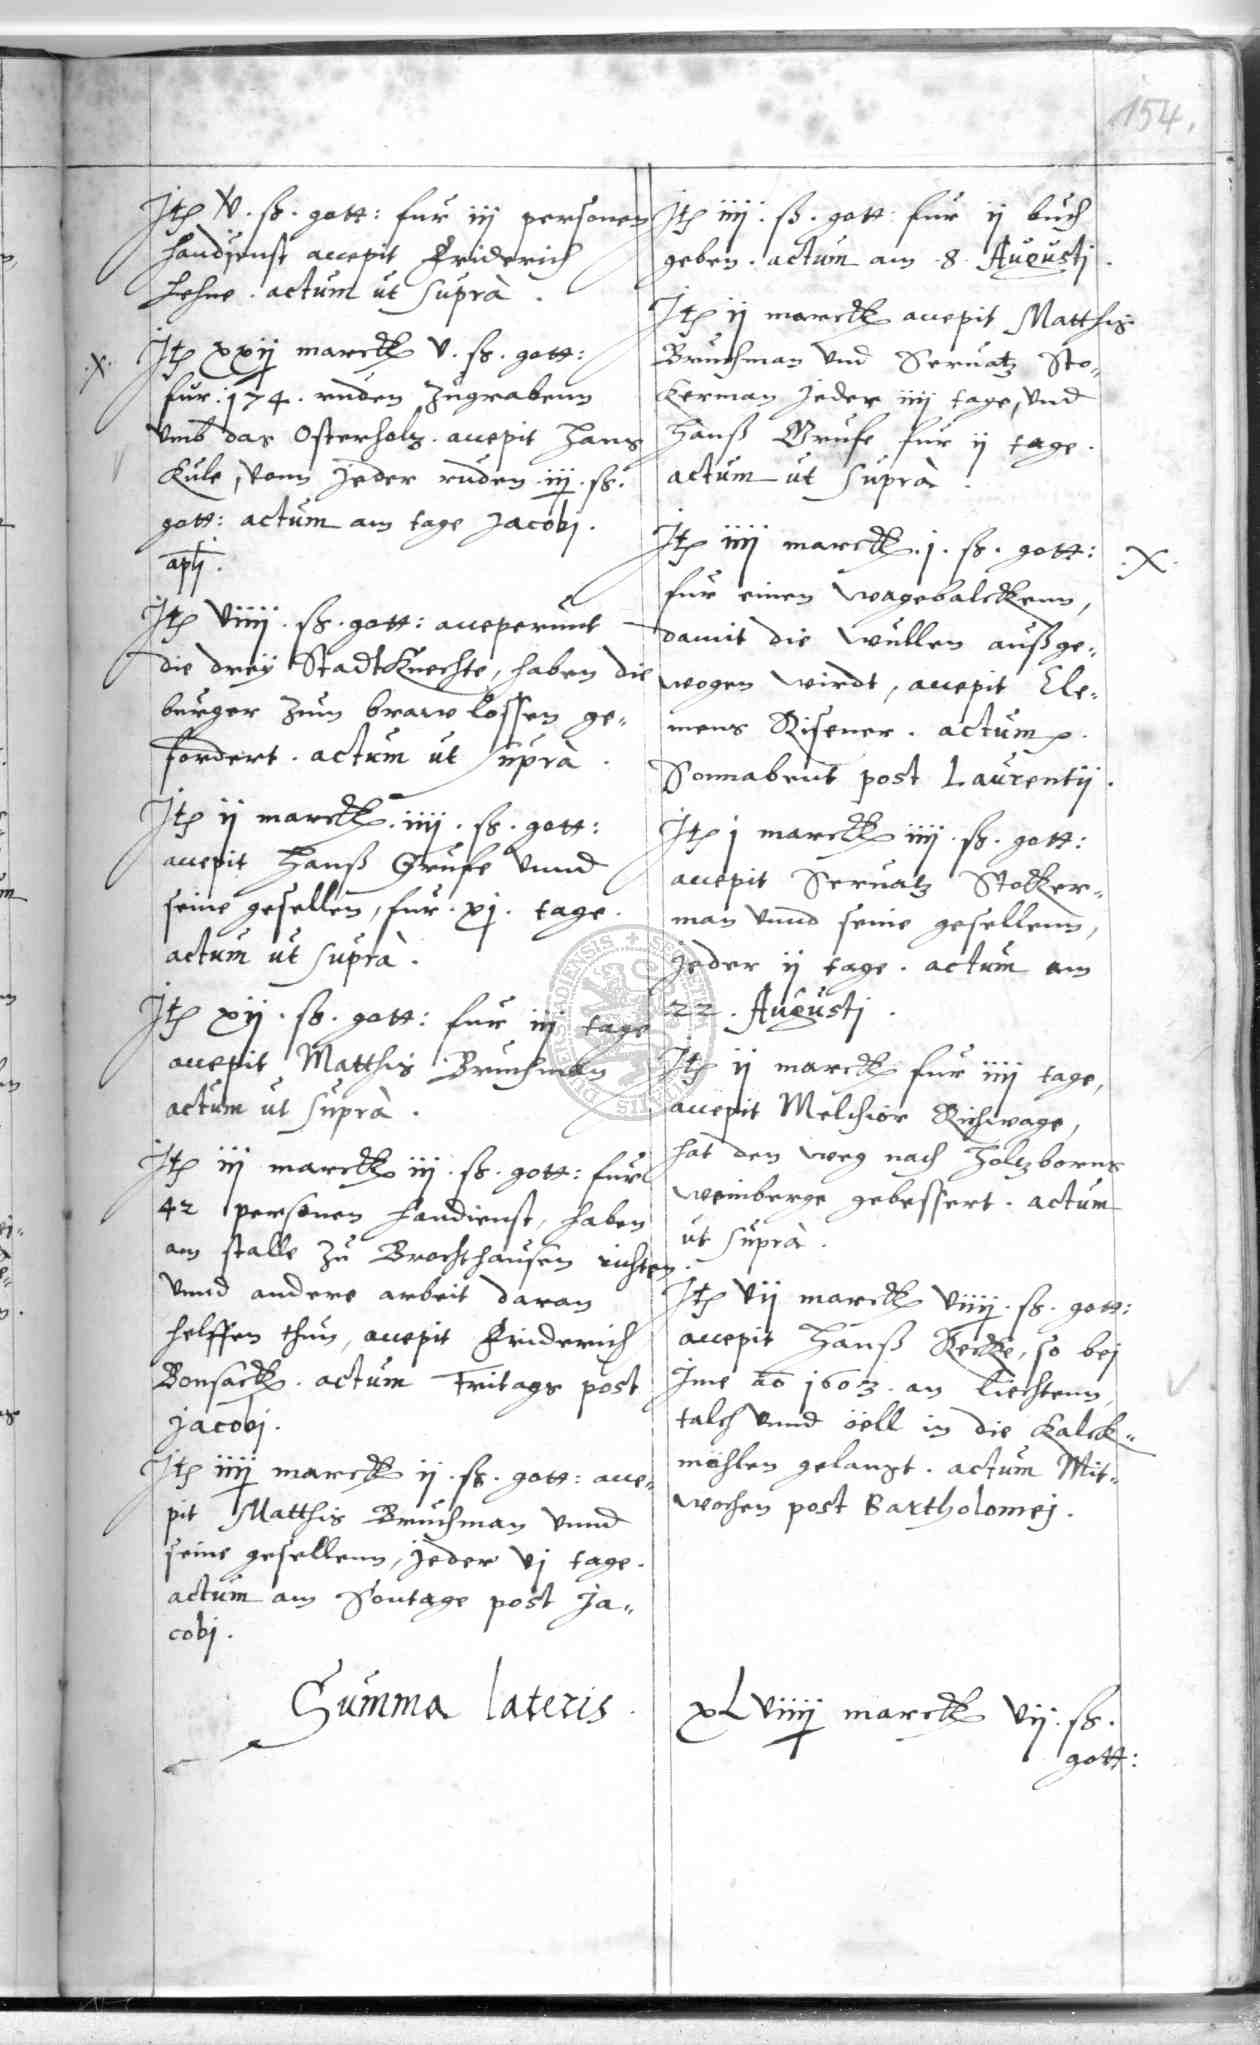 154.
Jtem v. ß. gott: fur iij personen
handienst accepit Friderich
Hehne. actum ut suprà.
.X.
Jtem xxij marck v. ß. gott:
fur .174. ruden zugrabenn
vmb das Osterholtz. accepit Hans
Kule, vonn jeder ruden .iij. ß.
gott: actum am tage Jacobj.
aplj.
Jtem viiij. ß. gott: acceperunt
die dreÿ StadtKnechte, haben die
burger zum braw lossen ge-
fordert. actum ut suprà.
Jtem ij marck. iiij. ß. gott:
accepit Hanß Grufe vnnd
seine gesellen, fur. xj. tage.
actum ut suprà.
Jtem xij. ß. gott: fur iij tage
accepit Matthis Bruchman
actum ut suprà.
Jtem iij marck iij. ß. gott: fur
42 personen handienst, haben
am stalle zu Brochthausen richten
vnnd andere arbeit daran
helffen thun, accepit Friderich
Bonsack. actum Fritags post
Jacobj.
Jtem iiij marck ij. ß. gott: acce-
pit Matthis Bruchman vnnd
seine gesellenn, jeder vj tage.
actum am Sontage post Ja-
cobj.
Jtem iiij. ß. gott: fur ij buch
geben. actum am .8. Augustj.
Jtem ij marck accepit Matthis
Bruchman vnd Seruatz Sto-
Kerman jeder iiij tage, vnd
Hanß Grufe fur ij tage.
actum ut suprà.
Jtem iiij marck. j. ß. gott:
.X.
fur einen wagebalckenn,
damit die wullen außge-
wogen wirdt, accepit Cle-
mens Risener. actum
Sonnabent post Laurentij.
Jtem j marck iiij. ß. gott:
accepit Seruatz Stocker-
man vnnd seine gesellenn,
jeder ij tage. actum am
22. Augustj.
Jtem ij marck fur iiij tage,
accepit Melchior Richwage,
hat den weg nach Holtzborns
weinberge gebessert. actum
ut suprà.
Jtem vij marck viiij. ß. gott:
accepit Hanß Kecke, so bej
Jme ao 1603. an liechtenn,
talch vnnd öell in die Kalck-
möhlen gelangt. actum Mit-
wochen post Bartholomej.
Summa lateris. xLviiij marck vij. ß.
gott: